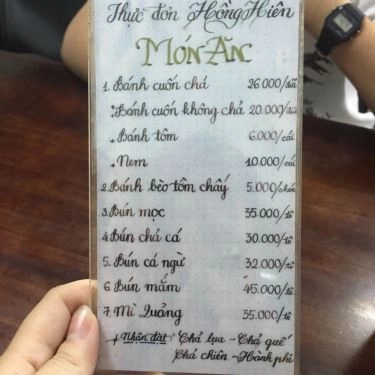 Thực đơn Hồng Hiên
MÓN ĂN
1. Bánh cuốn chả 26.000/đĩa
Bánh cuốn không chả 20.000/đĩa
Bánh tôm 6.000/cái
Nem 10.000/cái
2. Bánh bèo tôm chấy 5.000/chén
3. Bún mọc 35.000/tô
4. Bún chả cá 30.000/tô
5. Bún cá ngừ 32.000/tô
6. Bún mắm 45.000/tô
7. Mì Quảng 35.000/tô
+ Nhận đặt: Chả lụa - Chả quế
Chả chiên - Hành phi